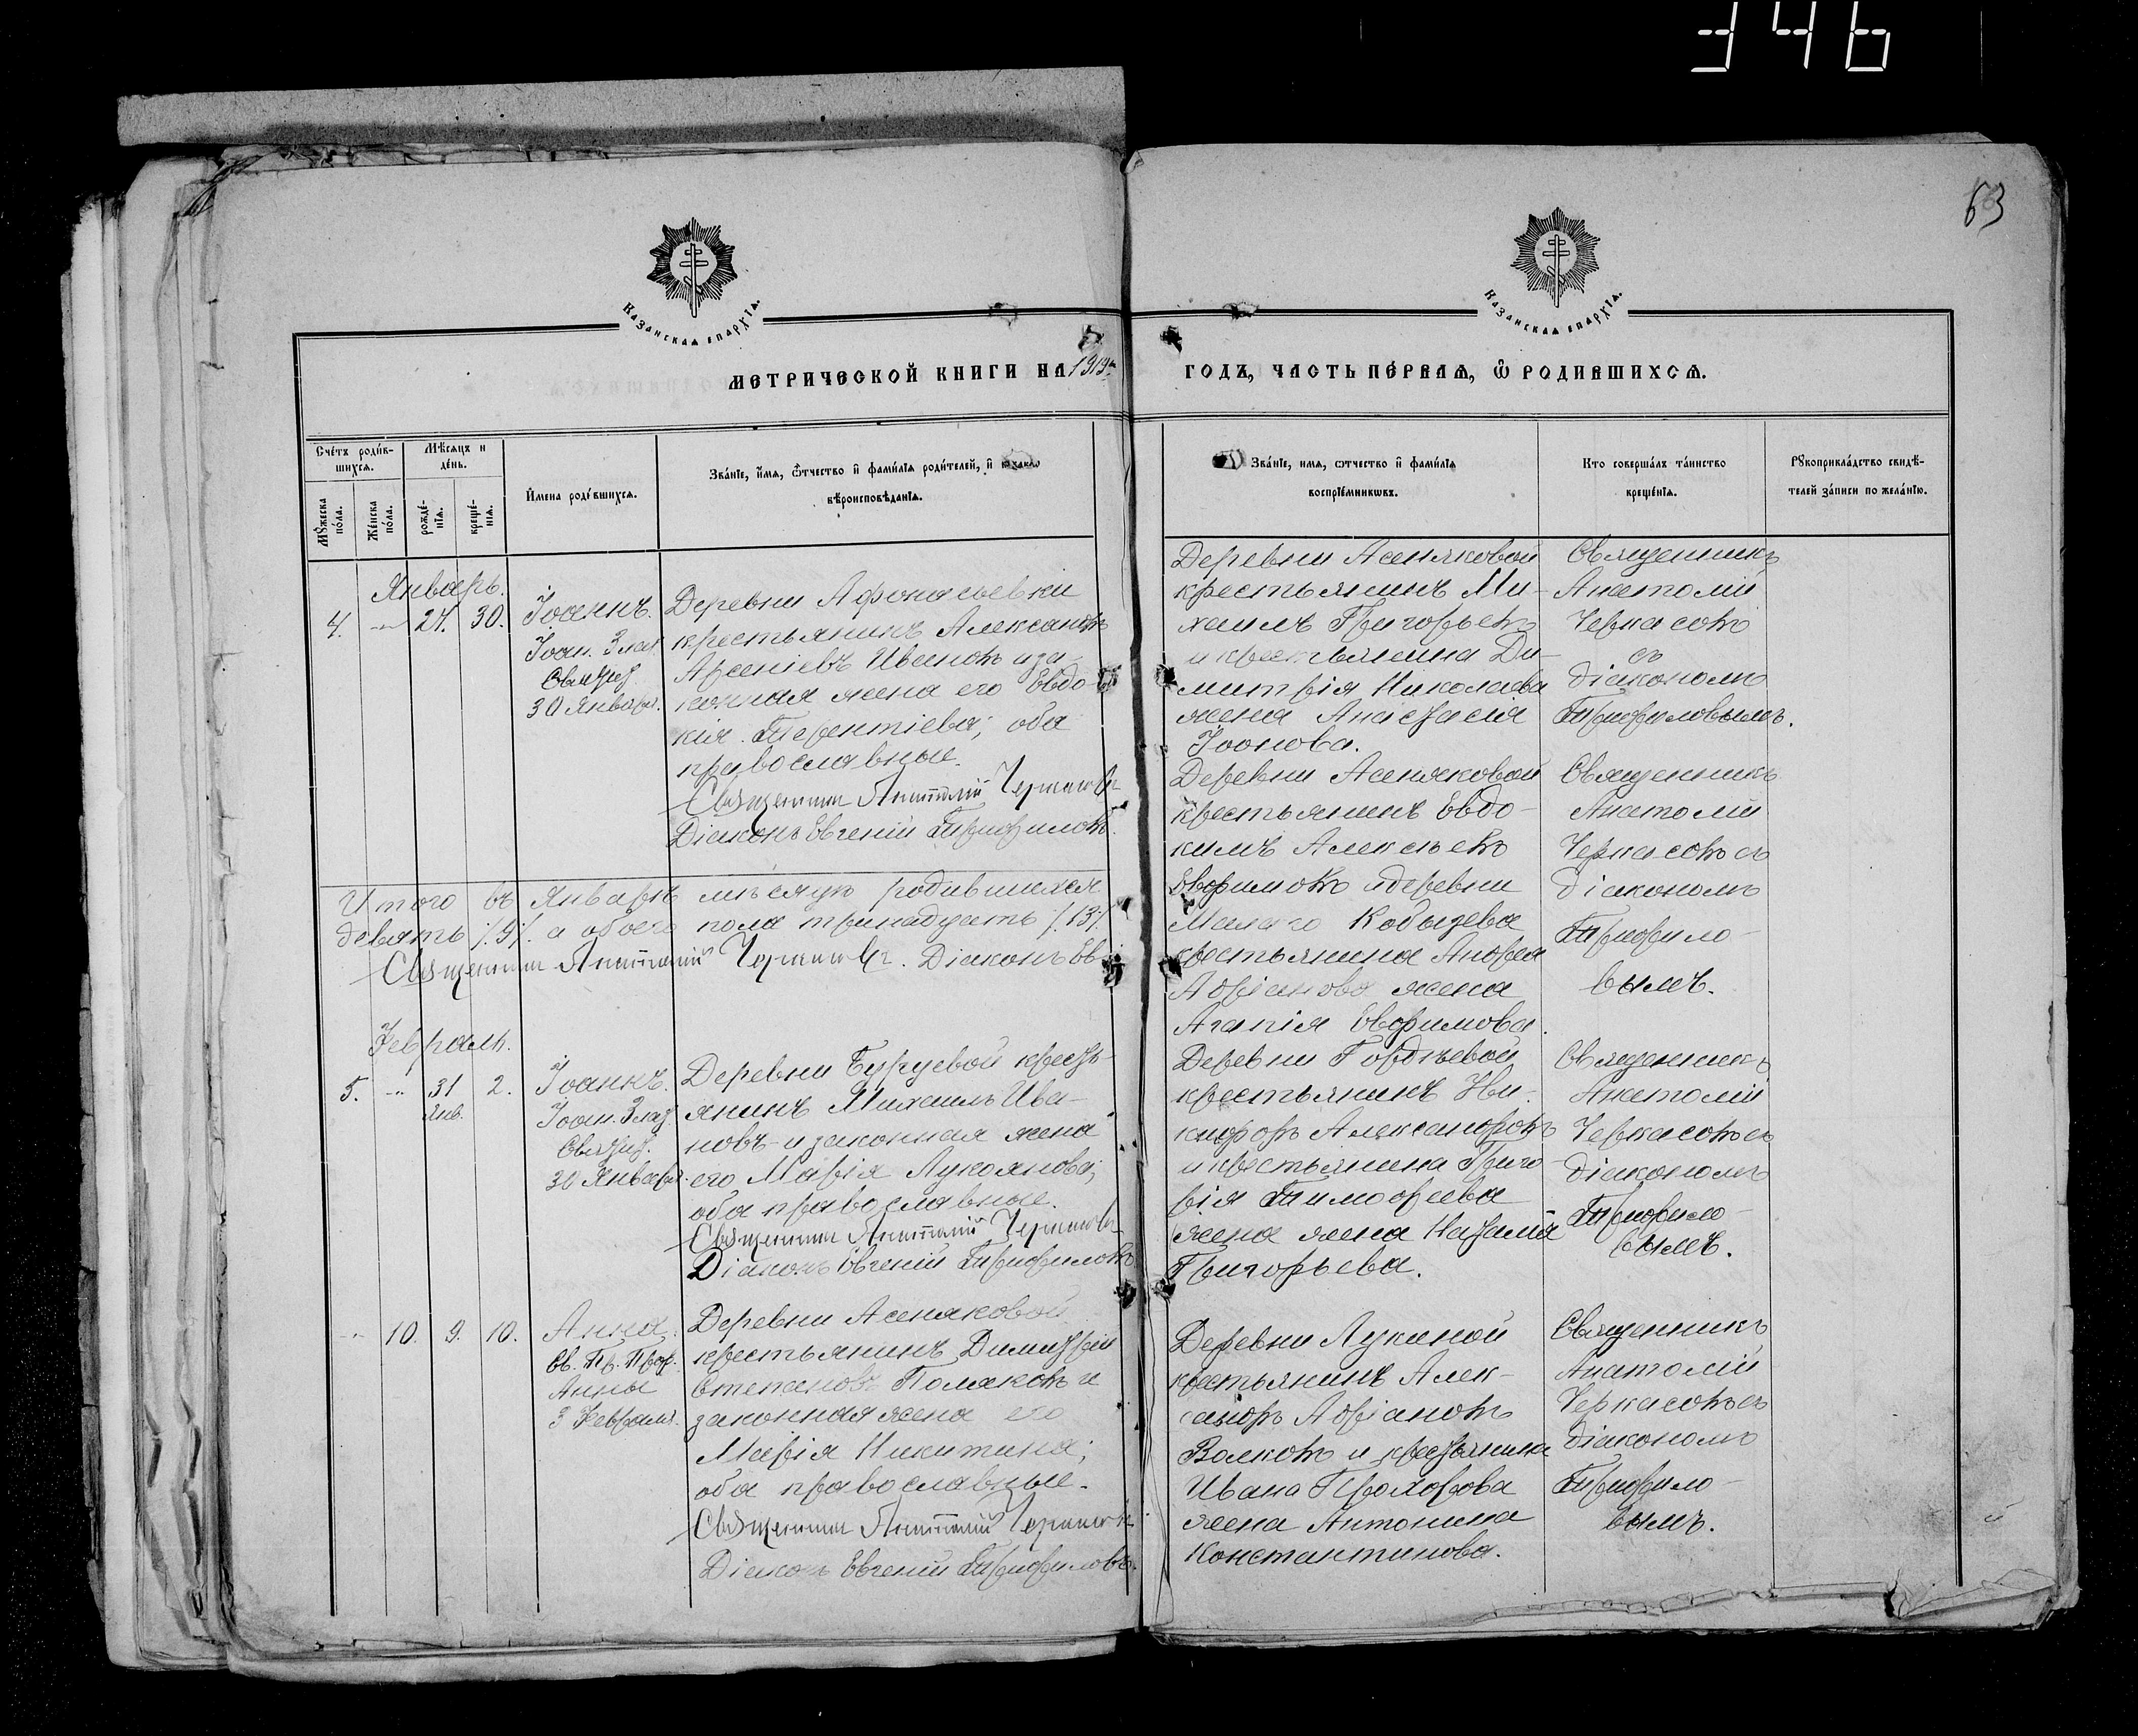 346
63
Казанская епархїѧ.
Казанская епархїѧ.
МЕТРИЧЕСКОЙ КНИГИ НА 1913 ГОДЪ, ЧАСТЬ ПЕРВАѦ, Ѡ РОДИВШИХСѦ.
Счетъ родив-
шихсѧ.
Мꙋжеска
пола.
Женска
пола.
Мѣсѧцъ и
день.
рожде-
нїѧ.
креще-
нїѧ.
Имена родившихсѧ.
Званїе, имѧ, ѿчество и фамилїѧ родителей, и
вѣроисповѣданїѧ.
Званїе, имѧ, ѡтчество и фамилїѧ
воспрїемникѡвъ.
Кто совершалъ таинство
крещенїѧ.
Рꙋкоприкладство свидѣ-
телей записи по желанїю.
Январь.
4. 27. 30.
Іоаннъ.
Іоан. Злат.
Святит.
30 Января.
Деревни Афонасьевки
крестьянинъ Александръ
Арсеніевъ Ивановъ и за-
конная жена его Евдо-
кія Терентіева; оба
православные.
Священникъ Анатолій Черкасовъ
Діаконъ Евгеній Трифиловъ.
Деревни Асеняковой
крестьянинъ Ми-
хаилъ Григорьевъ
и крестьянина Ди-
митрія Николаева
жена Анастасія
Іоонова.
Священникъ
Анатолій
Черкасовъ
съ
діакономъ
Трифиловымъ.
Деревни Асеняковой
крестьянинъ Евдо-
кимъ Алексѣевъ
Евфимовъ и деревни
Малаго Кобызева
крестьянина Андрея
Адріанова жена
Агапія Евфимова.
Священникъ
Анатолій
Черкасовъ съ
діакономъ
Трифило-
вымъ.
Итого въ Январѣ мѣсяцѣ родившихся
девять /9/. а обоего пола тринадцать /13/.
Священникъ Анатолій Черкасовъ. Діаконъ Ев-
Февраль.
5. 31 2.
Янв.
Іоаннъ.
Іоан. Злат.
Святит.
30 Января.
Деревни Бурусевой кресть-
янинъ Михаилъ Ива-
новъ и законная жена
его Марія Лукоянова;
оба православные.
Священникъ Анатолій Черкасовъ
Діаконъ Евгеній Трифиловъ
Деревни Гордѣевой
крестьянинъ Ни-
кифоръ Александровъ
и крестьянина Григо-
рія Тимофеева
жена жена Наталія
Григорьева.
Священникъ
Анатолій
Черкасовъ съ
діакономъ
Трифило-
вымъ.
10. 9. 10.
Анна.
Св. Пр. Прор.
Анны
3 Февраля.
Деревни Асеняковой
крестьянинъ Димитрій
Степановъ Поляковъ и
законная жена его
Марія Никитина;
оба православные.
Священникъ Анатолій Черкасовъ
Діаконъ Евгеній Трифиловъ.
Деревни Лукиной
крестьянинъ Алек-
сандръ Адріановъ
Волковъ и крестьянина
Ивана Прохорова
жена Антонина
Константинова.
Священникъ
Анатолій
Черкасовъ съ
діакономъ
Трифило-
вымъ.